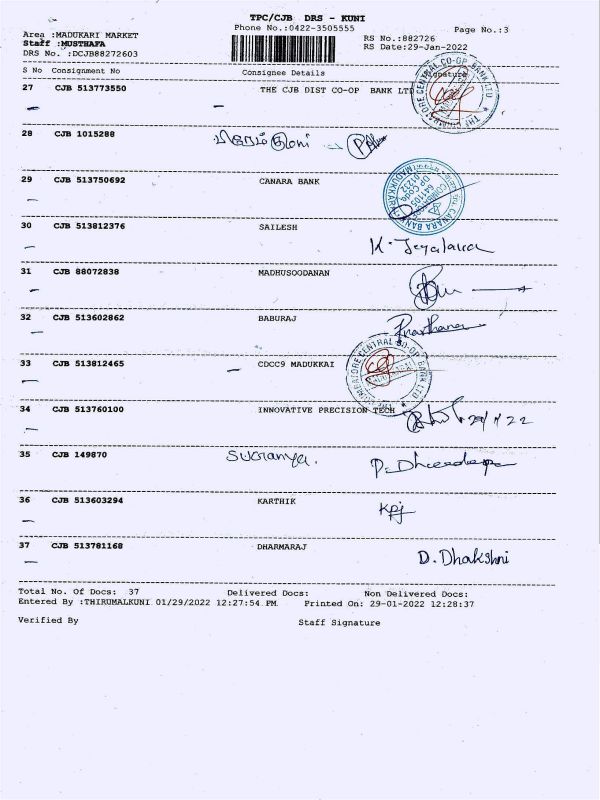 TPC/CJB DRS - KUNI
Phone No.:0422-3505555
Page No.:3
Area :MADUKARI MARKET
Staff :MUSTHAFA
RS No.:882726
DRS No. :DCJB88272603
RS Date:29-Jan-2022
S No Consignment No Consignee Details Signature
27 CJB 513773550 THE CJB DIST CO-OP BANK LTD
28 CJB 1015288
29 CJB 513750692 CANARA BANK
30 CJB 513812376 SAILESH
K. Jeyalaxa
31 CJB 88072838 MADHUSOODANAN
32 CJB 513602862 BABURAJ
Prarthana
33 CJB 513812465 CDCC9 MADUKKAI
34 CJB 513760100 INNOVATIVE PRECISION TECH
29/1/22
35 CJB 149870 Sukanya.
36 CJB 513603294 KARTHIK
37 CJB 513781168 DHARMARAJ
D. Dhakshni
Total No. Of Docs: 37 Delivered Docs: Non Delivered Docs:
Entered By :THIRUMALKUNI 01/29/2022 12:27:54 PM Printed On: 29-01-2022 12:28:37
Verified By Staff Signature